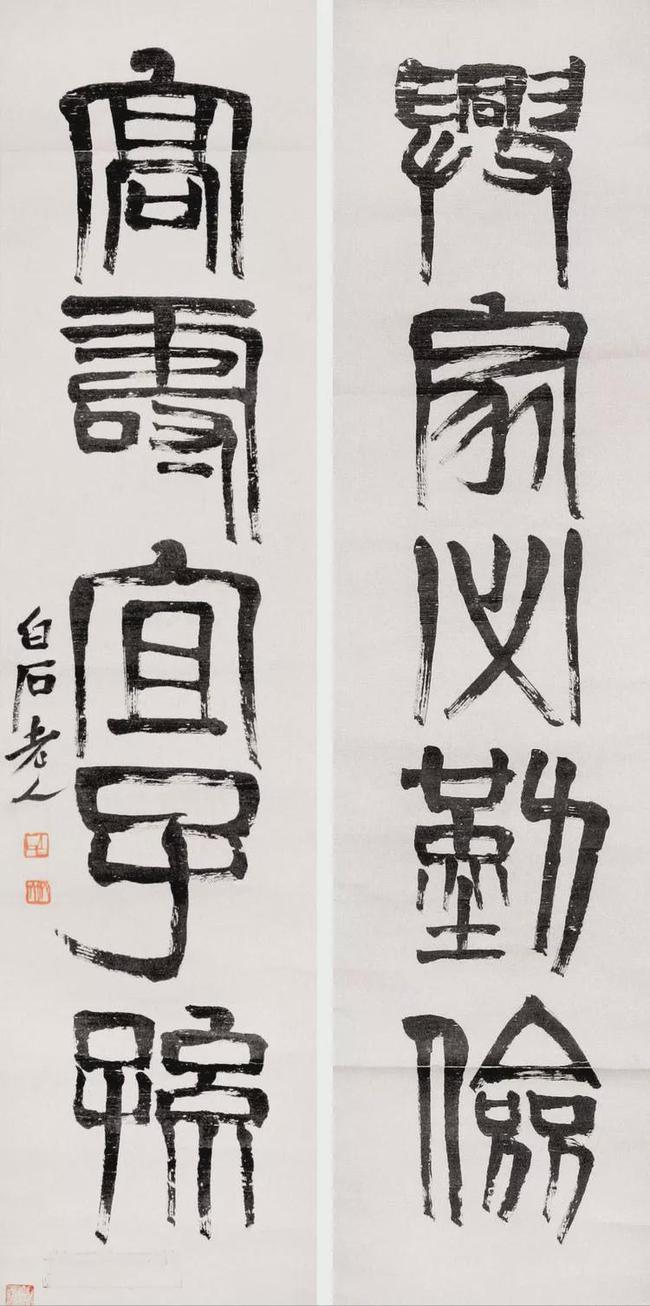 興家必勤儉
高壽宜子孫
白石老人